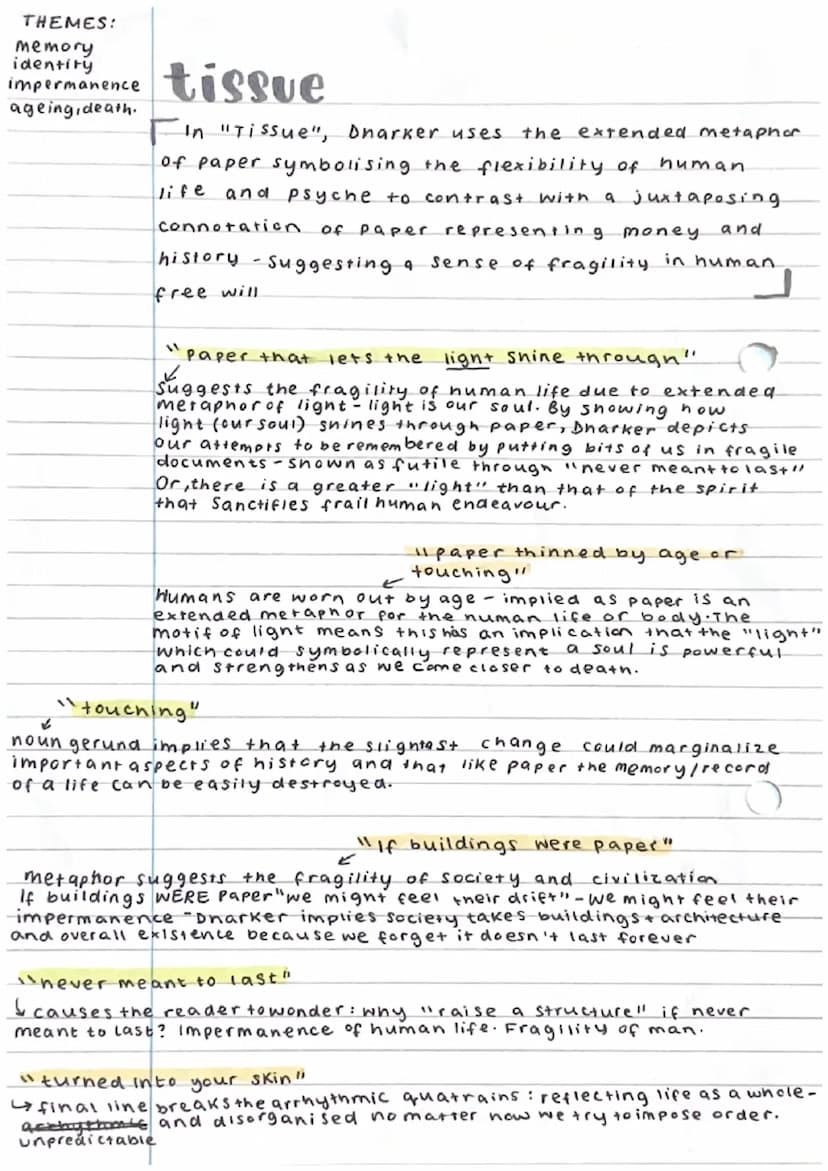 THEMES:
memory
identity
impermanence
ageing, death.
tissue
In "Tissue", Dharker uses the extended metaphor
of paper symbolising the flexibility of human
life and psyche to contrast with a juxtaposing
connotation of paper representing money and
history - suggesting a sense of fragility in human
free will
"paper that lets the light shine through"
suggests the fragility of human life due to extended
metaphor of light - light is our soul. By showing how
light (our soul) shines through paper, Dharker depicts
our attempts to be remembered by putting bits of us in fragile
documents - shown as futile through "never meant to last"
Or, there is a greater "light" than that of the spirit
that sanctifies frail human endeavour.
"paper thinned by age or
touching"
Humans are worn out by age - implied as paper is an
extended metaphor for the human life or body. The
motif of light means this has an implication that the "light"
which could symbolically represent a soul is powerful
and strengthens as we come closer to death.
"touching"
noun gerund implies that the slightest change could marginalize
important aspects of history and that like paper the memory/record
of a life can be easily destroyed.
"If buildings were paper"
metaphor suggests the fragility of society and civilization
If buildings WERE paper "we might feel their drift" - we might feel their
impermanence - Dharker implies society takes buildings + architecture
and overall existence because we forget it doesn't last forever
"never meant to last"
↳ causes the reader to wonder: why "raise a structure" if never
meant to last? Impermanence of human life. Fragility of man.
"turned into your skin"
↳ final line breaks the arrhythmic quatrains: reflecting life as a whole -
arrhythmic and disorganised no matter how we try to impose order.
unpredictable